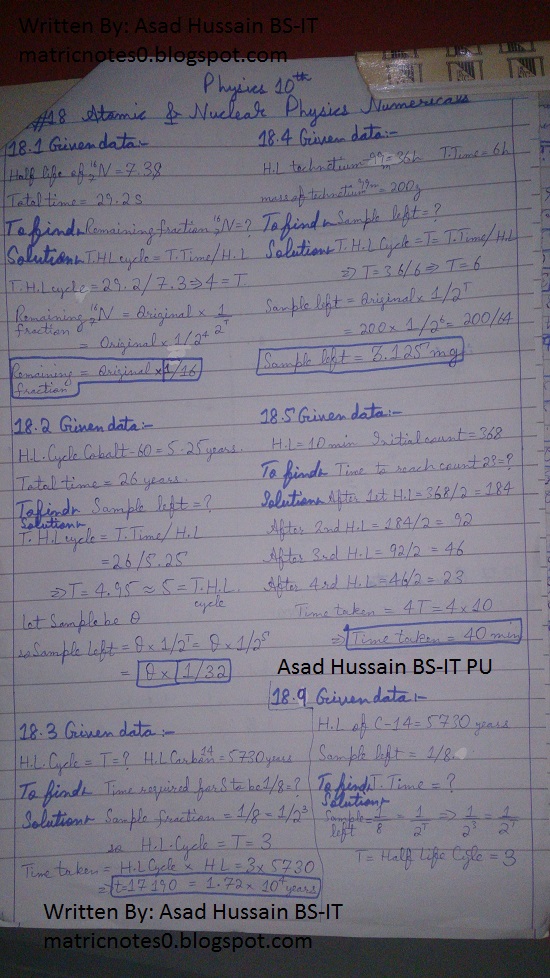 Written By: Asad Hussain BS-IT
matricnotes0.blogspot.com
Physics 10th
#18 Atomic & Nuclear Physics Numericals
18.1 Given data:-
Half life of 16 7 N = 7.3s
Total time = 29.2 s
To find:- Remaining fraction 16 7 N = ?
Solution:- T.H.L cycle = T.Time/H.L
T.H.L cycle = 29.2/7.3 ⇒ 4 = T
Remaining 16 7 N = Original × 1/2^T
fraction
= Original × 1/2^4
Remaining = Original × 1/16
fraction
18.2 Given data:-
H.L. Cycle Cobalt-60 = 5.25 years.
Total time = 26 years.
To find:- Sample left = ?
Solution:-
T. H.L cycle = T.Time/H.L
= 26/5.25
⇒ T = 4.95 ≈ 5 = T.H.L.
cycle
let Sample be θ
so Sample left = θ × 1/2^T = θ × 1/2^5
= θ × 1/32
18.3 Given data:-
H.L. Cycle = T = ? H.L Carbon 14 = 5730 years
To find:- Time required for S to be 1/8 = ?
Solution:- Sample fraction = 1/8 = 1/2^3
so H.L. Cycle = T = 3
Time taken = H.L Cycle × H.L = 3 × 5730
⇒ t = 17190 = 1.72 × 10^4 years
18.4 Given data:-
H.L technetium-99m = 36h T.Time = 6h
mass of technetium 99m = 200g
To find:- Sample left = ?
Solution:- T.H.L Cycle = T = T.Time/H.L
⇒ T = 36/6 ⇒ T = 6
Sample left = Original × 1/2^T
= 200 × 1/2^6 = 200/64
Sample left = 3.125 mg
18.5 Given data:-
H.L = 10 min Initial count = 368
To find:- Time to reach count 23 = ?
Solution:- After 1st H.L = 368/2 = 184
After 2nd H.L = 184/2 = 92
After 3rd H.L = 92/2 = 46
After 4rd H.L = 46/2 = 23
Time taken = 4T = 4 × 10
⇒ Time taken = 40 min
Asad Hussain BS-IT PU
18.9 Given data:-
H.L of C-14 = 5730 years
Sample left = 1/8
To find:- T. Time = ?
Solution:-
Sample left = 1/8 = 1/2^T ⇒ 1/2^3 = 1/2^T
T = Half Life Cycle = 3
Written By: Asad Hussain BS-IT
matricnotes0.blogspot.com